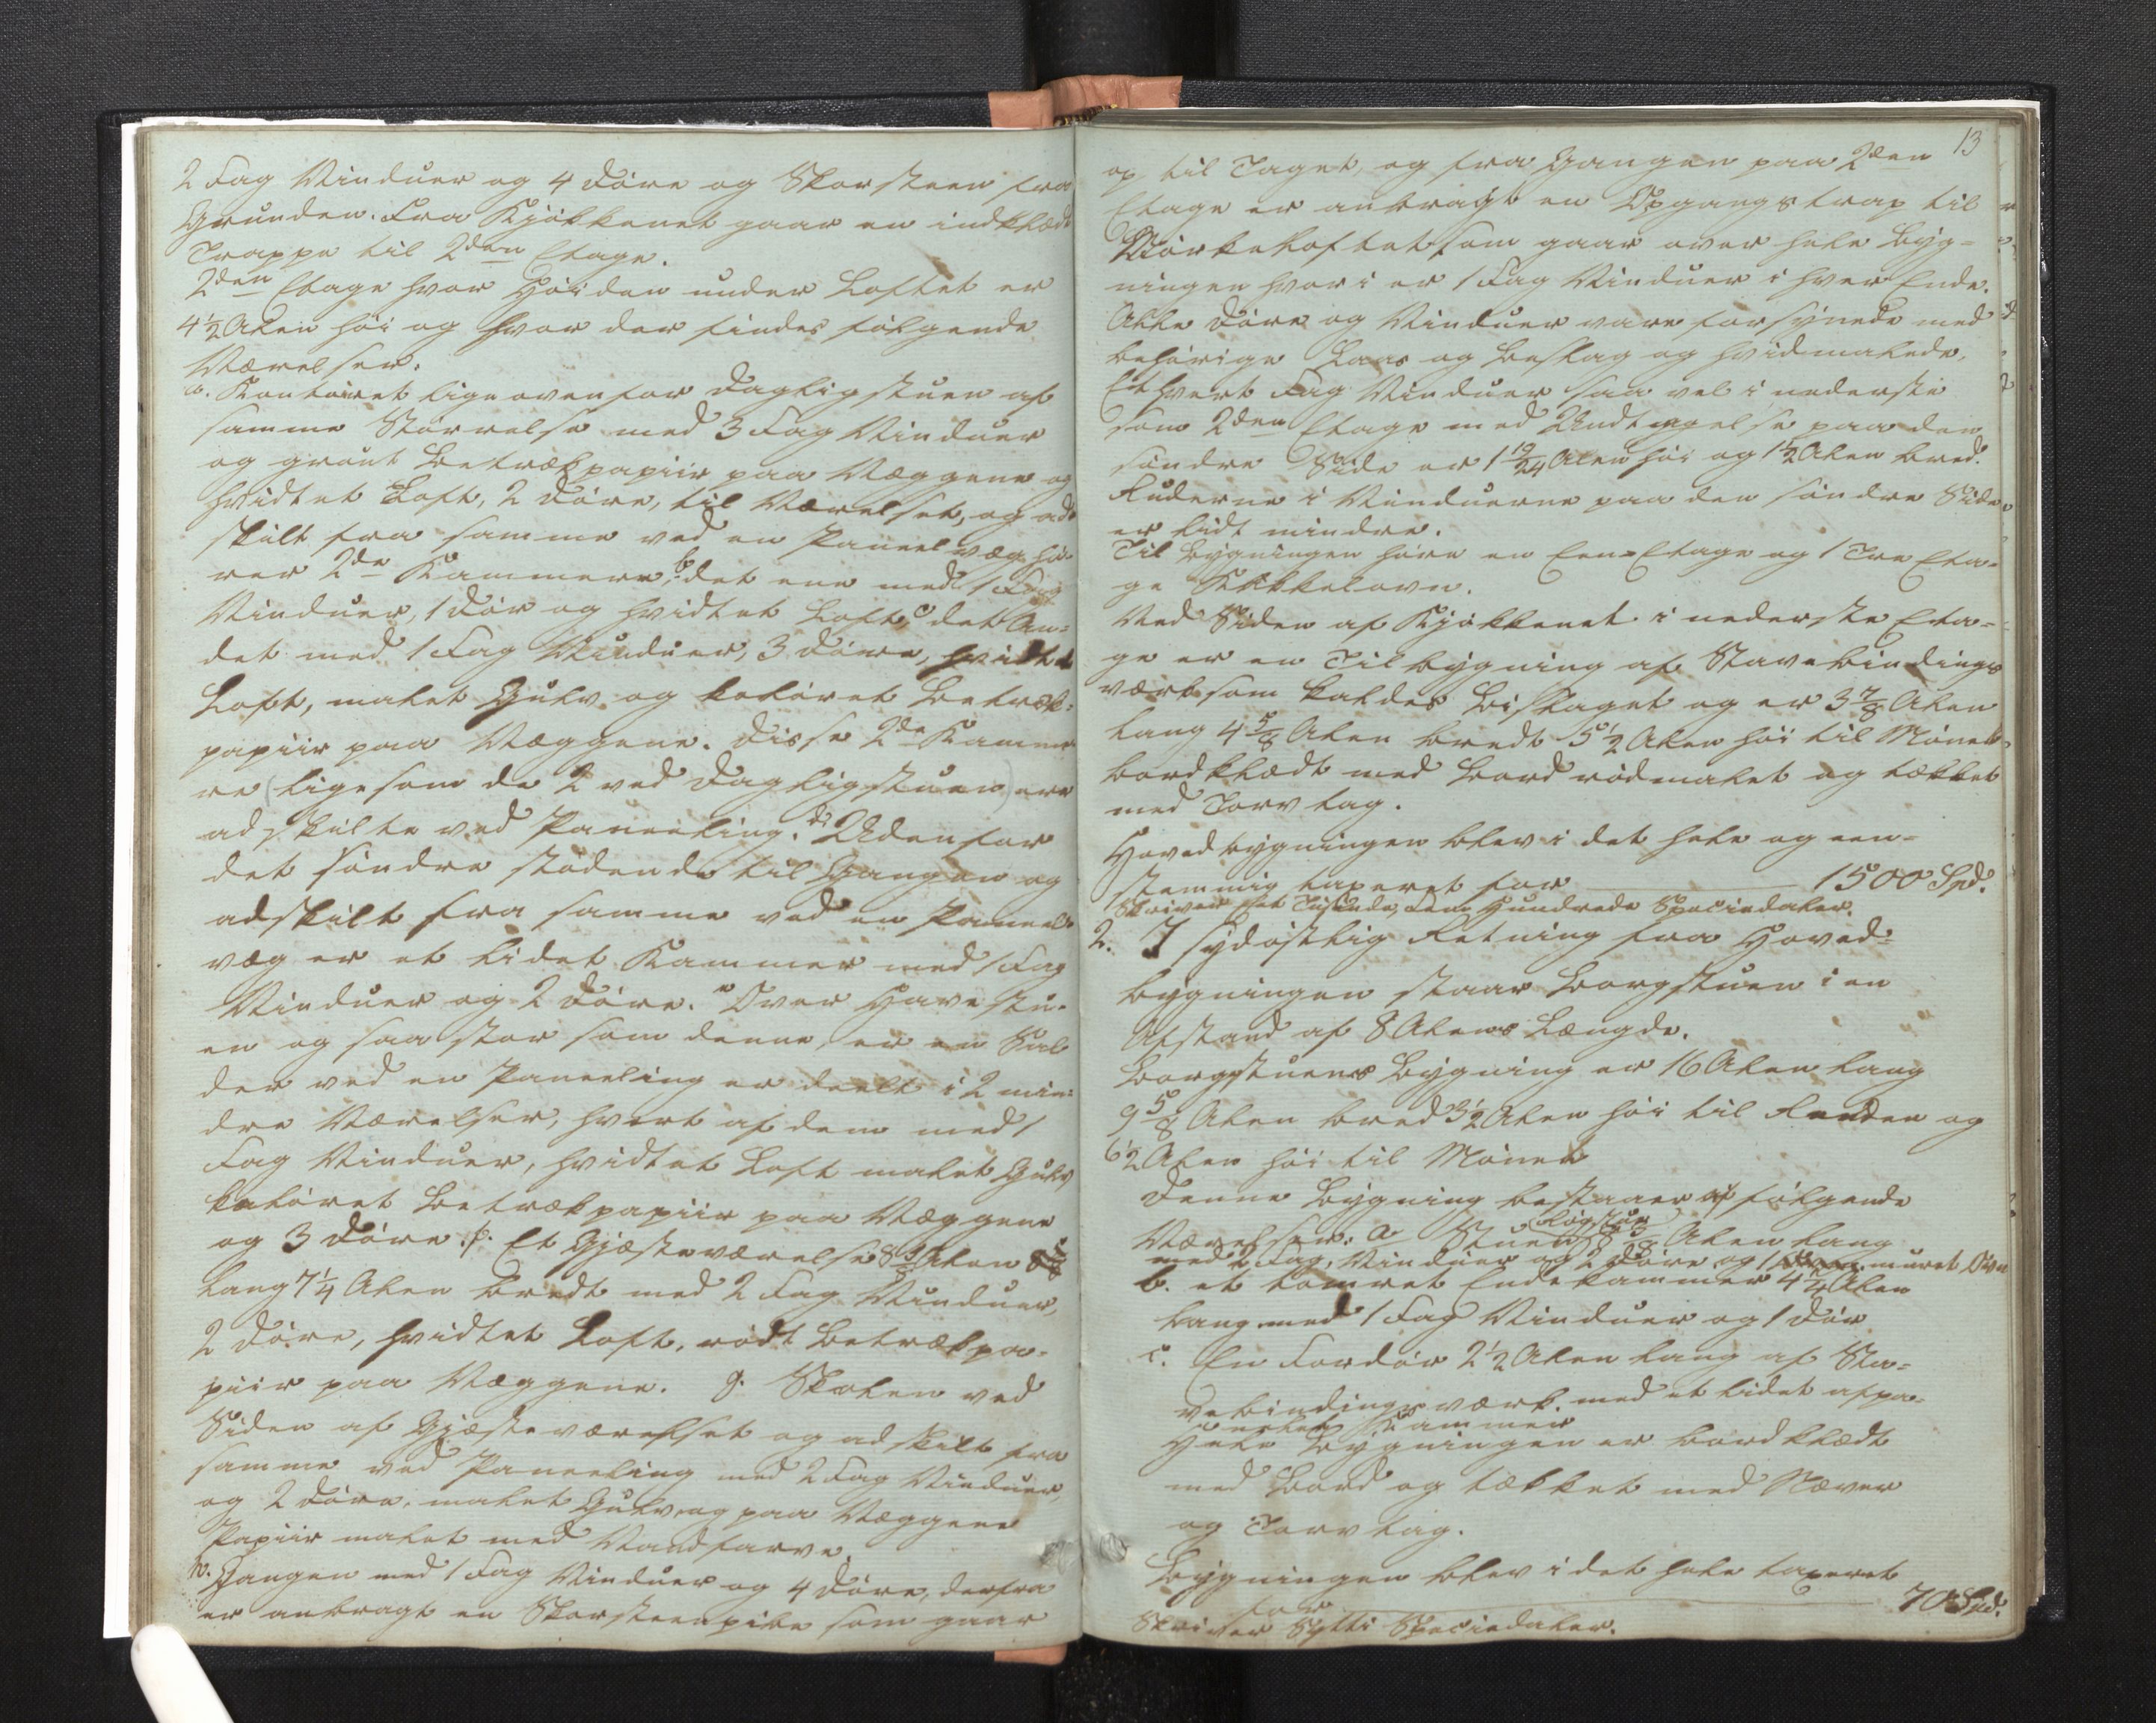 2 Fag Vinduer og 4 Döre og Skorsteen fra
Grunden. Fra Kjökkenet gaar en indklædt
Trappe til 2den Etage.
2den Etage hvor Höiden under Loftet er
4 1/2 Alen höi og hvor der findes fölgende
Værelser:
a. Kontoiret lige ovenfor Dagligstuen af
samme Störrelse med 3 Fag Vinduer
og grönt Betrækpapiir paa Væggene og
hvidtet Loft, 2 Döre, til Værelset, og ad-
skilt fra samme ved en Paneelvæg hö-
rer 2de Kammere, b. det ene med 1 Fag
Vinduer, 1 Dör og hvidtet Loft, c det An-
det med 1 Fag Vinduer, 3 Döre, hvidtet
Loft, malet Gulv og kolöret Betræk-
papiir paa Væggene. Disse 2de Kamme-
re (ligesom de 2 ved Dagligstuen) ere
adskilte ved Paneeling. d. Udenfor
det söndre stödende til Gangen og
adskilt fra samme ved en Paneel-
væg er et lidet Kammer med 1 Fag
Vinduer og 2 Döre. e Over Havestu-
en og saa stor som denne, er en Sal
der ved en Paneeling er deelt i 2 min-
dre Værelser, hvert af dem med 1
Fag Vinduer, hvidtet Loft malet Gulv
kolöret Betrækpapiir paa Væggene
og 3 Döre. f. Et Gjæsteværelse Alen
lang 7 1/4 Alen bredt med 2 Fag Vinduer,
2 Döre, hvidtet Loft, rödt Betrækpa-
piir paa Væggene. g. Skolen ved
Siden af Gjæsteværelset og adskilt fra
samme ved Paneeling med 2 Fag Vinduer,
og 2 Döre, malet Gulv og paa Væggene
Papiir malet med Vandfarve.
h. Gangen med 1 Fag Vinduer og 4 Döre, derfra
er anbragt en Skorsteenpibe som gaar
13
op til Taget, og fra Gangen paa 2den
Etage er anbragt en Opgangstrap til
Mörkeloftet som gaar over hele Byg-
ningen hvori er 1 Fag Vinduer i hver Ende.
Alle Döre og Vinduer vare forsynede med
behörige Laas og Beslag og hvidmalede.
Ethvert Fag Vinduer saa vel i nederste
som 2den Etage med Undtagelse paa den
söndre Side er 1 19/24 Alen höi og 1 1/2 Alen bred.
Ruderne i Vinduerne paa den söndre Side
er lidt mindre.
Til Bygningen höre en Een-Etage og 1 Tre Eta-
ge Kakkelovn.
Ved Siden af Kjökkenet i nederste Eta-
ge er en Tilbygning af Stavebindings
værk som kaldes Bislaget og er 3 7/8 Alen
lang 4 5/8 Alen bredt 5 1/2 Alen höi til Mönet-
bordklædt med Bord rödmalet og tækket
med Torvtag.
Hovedbygningen blev i det hele og een-
stemmig taxeret for 1500 Spd.
Skriver et Tusinde, Fem Hundrede Speciedaler.
2. I sydöstlig Retning fra Hoved-
bygningen staar Borgstuen i en
Afstand af 8 Alens Længde.
Borgstuens Bygning er 16 Alen lang
9 5/8 Alen bred 3 1/2 Alen höi til Randen og
6 1/2 Alen höi til Mönet
Denne Bygning bestaaer af fölgende
Værelser: a Stuen (Rögstue) 8 5/8 Alen lang
med 2 Fag Vinduer og 2 Döre og 1 muret Ovn
b. et tömret Endekammer 4 1/4 Alen
lang med 1 Fag Vinduer og 1 Dör
c. En Fordör 2 1/2 Alen lang af Sta-
vebindingsværk. med et lidet afpa-
nelet Kammer
Hele Bygningen er bordklædt
med Bord og tækket med Næver
og Torvtag.
Bygningen blev i det hele taxeret
for 70 Spd.
Skriver Sytti Speciedaler.